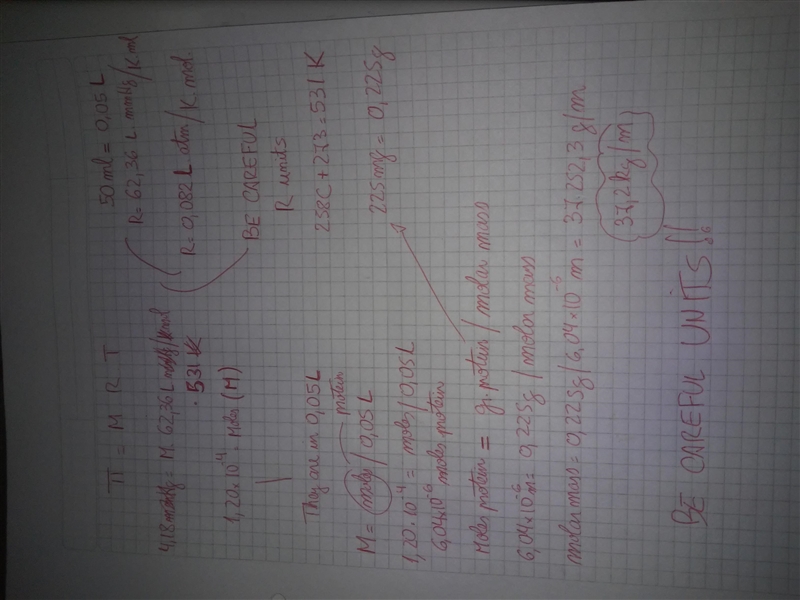 Π = M R T
4,18 mmHg = M. 62,36 L mmHg/K mol
. 531 K
1,20×10⁻⁴ = Moles (M)
They are in 0,05L
M = moles protein / 0,05 L
1,20×10⁻⁴ = moles / 0,05L
6,04×10⁻⁶ moles protein
Moles protein = g. protein / molar mass
6,04×10⁻⁶ m = 0,225g / molar mass
molar mass = 0,225g / 6,04×10⁻⁶ m = 37.252,3 g/m
37,2 kg/m
50 ml = 0,05 L
R = 62,36 L mmHg/K.mol
R = 0,082 L atm / K.mol.
BE CAREFUL
R units
258C + 273 = 531 K
225 mg = 0,225g
BE CAREFUL UNITS !!